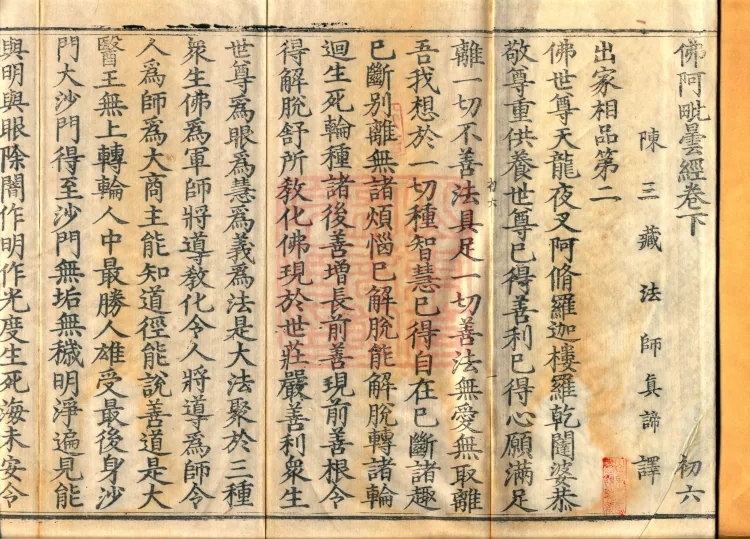 佛阿毗曇經卷下
初六
陳三藏法師眞諦譯
出家相品第二
佛世尊天龍夜叉阿脩羅迦樓羅乾闥婆恭
敬尊重供養世尊已得善利已得心願滿足
離一切不善法具足一切善法無愛無取離
吾我想於一切種智慧已得自在已斷諸趣
已斷別離無諸煩惱已解脫能解脫轉諸輪
迴生死輪種諸後善增長前善現前善根令
得解脫舒所教化佛現於世莊嚴善利衆生
初六
世尊爲眼爲慧爲義爲法是大法聚於三種
衆生佛爲軍師將導教化令人將導爲師令
人爲師爲大商主能知道徑能說善道是大
醫王無上轉輪人中最勝人雄受最後身沙
門大沙門得至沙門無垢無穢明淨遍見能
與明與眼除闇作明作光度生死海未安令